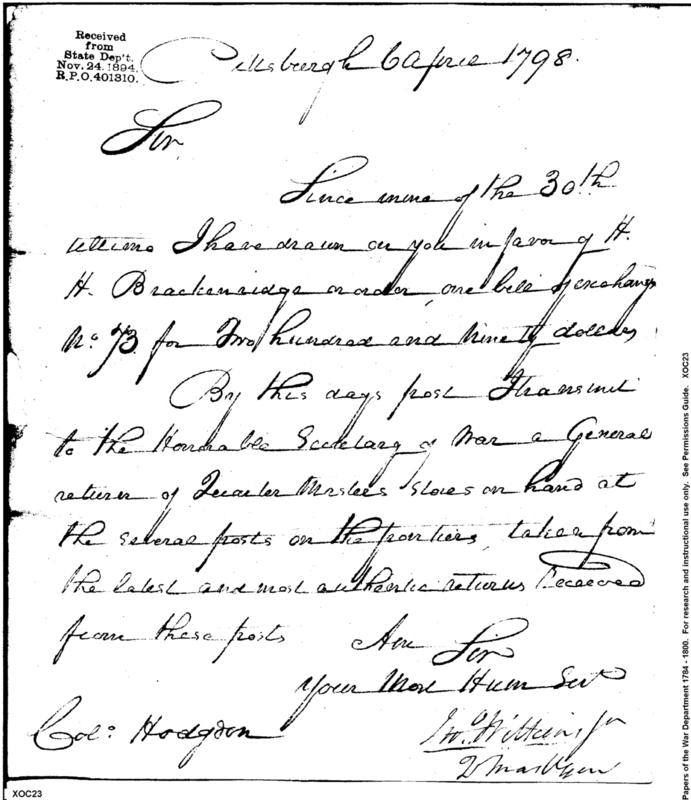 Received
from
State Dep't.
Nov. 24. 1894.
R.P.O. 401310.
Pittsburgh 6 April 1798.
Sir,
Since mine of the 30th
ultimo I have drawn on you in favor of H.
H. Brackenridge or order, one bill of exchange
No. 73. for Two hundred and Ninety dollars
By this days post I transmit
to the Honorable Secretary of War a General
return of Quarter Masters stores on hand at
the several posts on the frontiers, taken from
the latest and most authentic returns Received
from these posts Am Sir
Your Most Hum Servt
Jno. Wilkins Jr
Colo. Hodgdon
Papers of the War Department 1784 - 1800. For research and instructional use only. See Permissions Guide. XOC23
XOC23